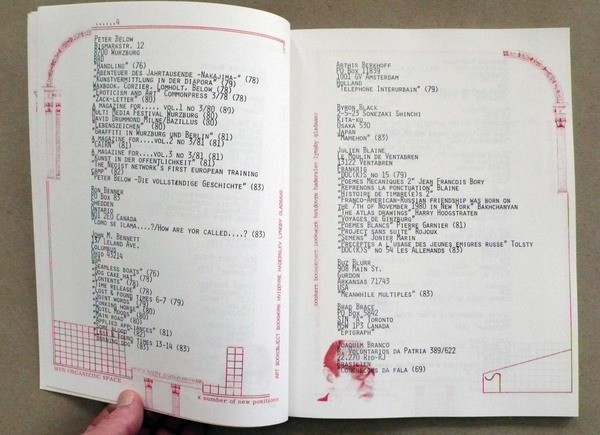 ......4
PETER BELOW
BISMARKSTR. 12
8700 WURZBURG
BRD
"HANDLING" (76)
"ABENTEUER DES JAHRTAUSENDE -NAKAJIMA-" (78)
"KUNSTVERMITTLUNG IN DER DIAPORA" (79)
WAXBOOK, CORZIER, LOMHOLT, BELOW (78)
"EROTICISM AND ART" COMMONPRESS 3/78 (78)
"ZACK-LETTER" (80)
A MAGAZINE FOR..... VOL.1 NO 3/80 (89)
MULTI MEDIA FESTIVAL WURZBURG (80)
DAVID DRUMMOND MILNE/BAZILLUS (80)
"LEBENSZEICHEN" (80)
"GRAFFITI IN WURZBURG UND BERLIN" (81)
A MAGAZINE FOR....VOL.2 NO 3/81 (81)
"CAIRN" (81)
A MAGAZINE FOR....VOL.3 NO 3/81 (81)
"KUNST IN DER OFFENTLICHKEIT" (81)
"THE NEOIST NETWORK'S FIRST EUROPEAN TRAINING
CAMP" (82)
"PETER BELOW -DIE VOLLSTÆNDIGE GESCHICHTE" (83)
BOB BENNER
PO BOX 83
DRESDEN
ONTARIO
NOI 2EO CANADA
"COMO SE LLAMA....?/HOW ARE YOR CALLED....? (83)
JOHN M. BENNETT
137 LELAND AVE.
COLUMBUS
OHIO 43214
USA
"SEAMLESS BOATS" (76)
"DOG CAKE HAT" (78)
"CONTENTS" (78)
"TIME RELEASE" (78)
"LOST & FOUND TIMES 6-7 (79)
"JOINT WORDS" (79)
"JONKING HORSE" (80)
"MOTEL MOODS" (80)
"MAIN ROAD" (80)
"APPLIED APPLIANCES" (81)
"PUMPED GRAVEL" (82)
"LOST & FOUND TIMES 13-14 (83)
(83)
WIN ORGANIZING SPACE
x number of new positions
ART BOOKOBJECT BOOKWORK HVIDOVRE HADERSLEV LYNGBY GLADSAXE
bookart bookobject bookwork hvidovre haderslev lyngby gladsaxe
ARTHIR BERKHOFF
PO BOX 11839
1001 GV AMSTERDAM
HOLLAND
"TELEPHONE INTERURBAIN" (79)
BYRON BLACK
2-5-23 SONEZAKI SHINCHI
KITA-KU
OSAKA 530
JAPAN
"MAMEHON" (83)
JULIEN BLAINE
LE MOULIN DE VENTABREN
13122 VENTABREN
FRANKRIG
"DOC(K)S NO 15 (79)
"POEMES MECANIQUES 2" JEAN FRANCOIS BORY
"REPRENONS LA PONCTUATION" BLAINE
"HISTOIRE DE TIMBRE(E)S 2"
"FRANCO-AMERICAN-RUSSIAN FRIENDSHIP WAS BORN ON
THE 7TH OF NOVEMBER 1980 IN NEW YORK" BAKHCHANYAN
"THE ATLAS DRAWINGS" HARRY HOOGSTRATEN
"VOYAGES DE GINZBURG"
"POEMES BLANCS" PIERRE GARNIER (81)
"PROJECT SANS SUITE" ROJOUX
"SEMENS" JONIER MARIN
"PRECEPTES A L'USAGE DES JEUNES EMIGRES RUSSE" TOLSTY
"DOC(K)S" NO 54 LES ALLEMANDS (83)
BUZ BLURR
908 MAIN ST.
GURDON
ARKANSAS 71743
USA
"MEANWHILE MULTIPLES" (83)
BRAD BRACE
PO BOX 5842
STN "A", TORONTO
MGW 1P3 CANADA
"EPIGRAPH"
JOAQUIM BRANCO
R. VOLONTARIOS DA PATRIA 389/622
22.270 RIO-RJ
BRASILIEN
"CONCRECOES DA FALA (69)